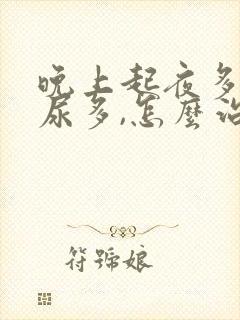 晚上起夜多
尿多,怎麼治
符號娘